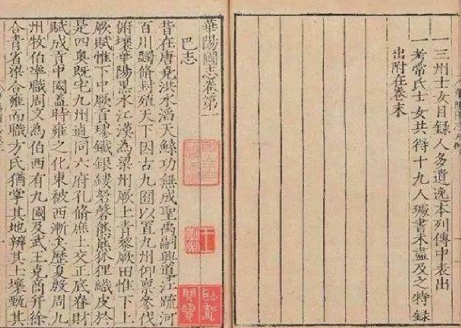 一三州士女目録人多遺逸本列傳中表出
考常氏士女共得十九人瑊書未盡及之特録
出附在卷末
華陽國志卷第一
巴志
昔在唐堯洪水滔天鯀功無成聖禹嗣興導江疏河
百川蠲脩封殖天下因古九囿以置九州仰禀參伐
俯壤華陽黑水江漢為梁州厥土青黎厥田惟下上
厥賦惟下中厥貢璆鐵銀鏤砮磬熊羆狐狸織皮於
是四奥既宅九州逌同六府孔脩庶土交正底眘財
賦成貢中國蓋時雍之化東被西漸矣歷夏殷周九
州牧伯率職周文為伯西有九國及武王克商并徐
合青省梁合雍而職方氏猶掌其地辨其土壤甄其